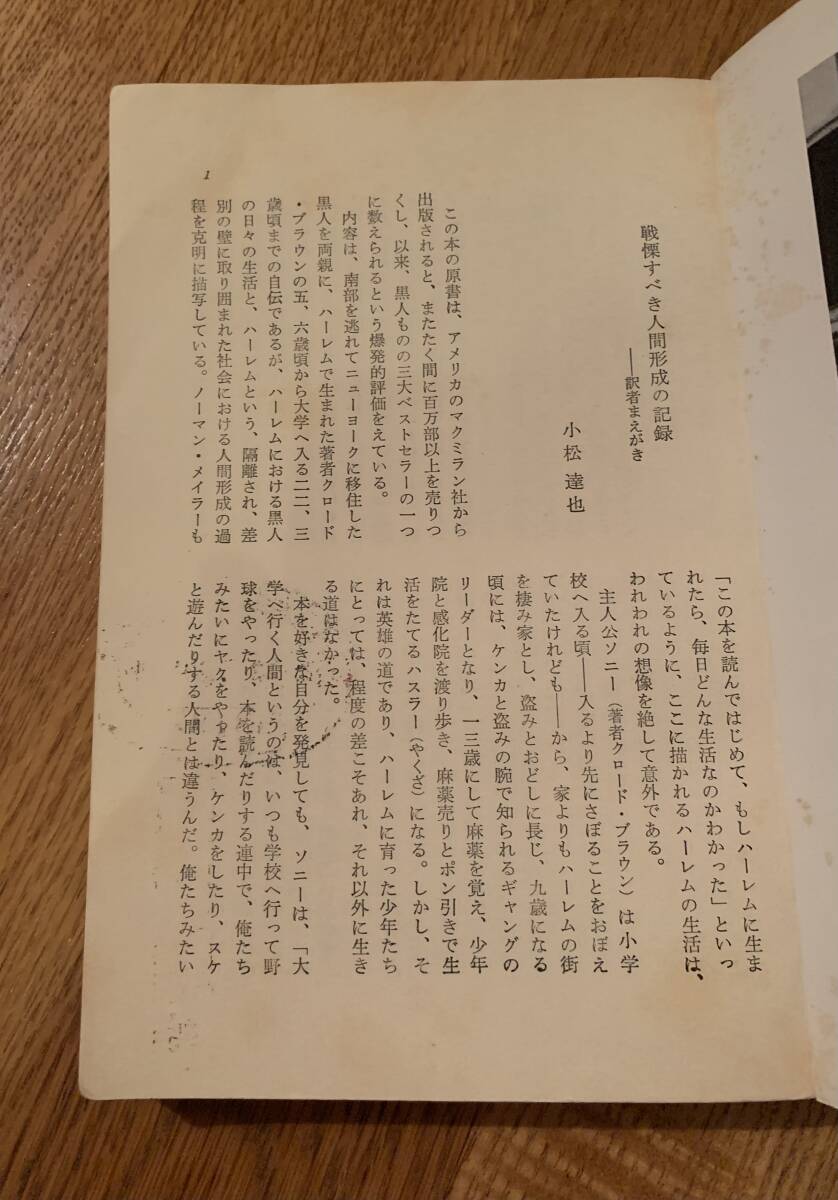 戦慄すべき人間形成の記録
――訳者まえがき
小松達也
この本の原書は、アメリカのマクミラン社から
出版されると、またたく間に百万部以上を売りつ
くし、以来、黒人ものの三大ベストセラーの一つ
に数えられるという爆発的評価をえている。
内容は、南部を逃れてニューヨークに移住した
黒人を両親に、ハーレムで生まれた著者クロード
・ブラウンの五、六歳頃から大学へ入る二二、三
歳頃までの自伝であるが、ハーレムにおける黒人
の日々の生活と、ハーレムという、隔離され、差
別の壁に取り囲まれた社会における人間形成の過
程を克明に描写している。ノーマン・メイラーも
「この本を読んではじめて、もしハーレムに生ま
れたら、毎日どんな生活なのかわかった」といっ
ているように、ここに描かれるハーレムの生活は、
われわれの想像を絶して意外である。
主人公ソニー(著者クロード・ブラウン)は小学
校へ入る頃――入るより先にさぼることをおぼえ
ていたけれども――から、家よりもハーレムの街
を棲み家とし、盗みとおどしに長じ、九歳になる
頃には、ケンカと盗みの腕で知られるギャングの
リーダーとなり、一三歳にして麻薬を覚え、少年
院と感化院を渡り歩き、麻薬売りとポン引きで生
活をたてるハスラー(やくざ)になる。しかし、そ
れは英雄の道であり、ハーレムに育った少年たち
にとっては、程度の差こそあれ、それ以外に生き
る道はなかった。
本を好きな自分を発見しても、ソニーは、「大
学へ行く人間というのは、いつも学校へ行って野
球をやったり、本を読んだりする連中で、俺たち
みたいにヤクをやったり、ケンカをしたり、スケ
と遊んだりする人間とは違うんだ。俺たちみたい
1